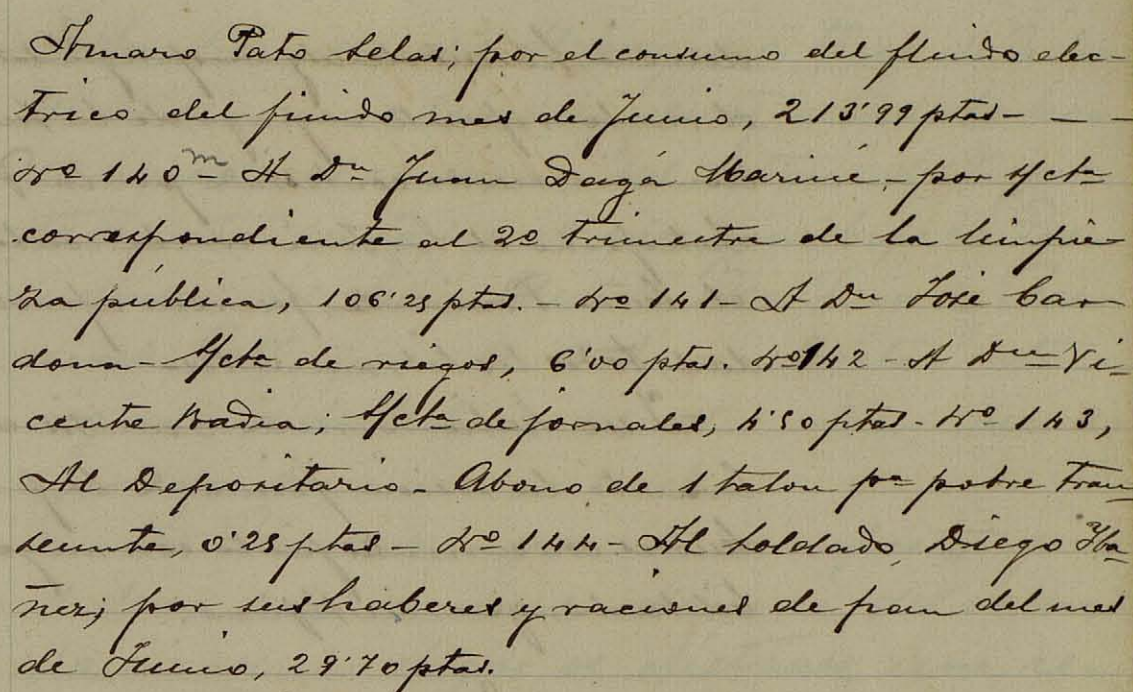 Amaro Pato Selas; por el consumo del fluido elec-
trico del finido mes de Junio, 213'99 ptas - - -
Nº 140 - A Dn Juan Dagá Mariné - por s/cta
correspondiente al 2º trimestre de la limpie-
za pública, 106'25 ptas. - Nº 141 - A Dn José Car
dona - s/cta de riegos, 6'00 ptas. Nº 142 - A Dn Vi-
cente Badia; s/cta de jornales, 4'50 ptas - Nº 143,
Al Depositario - Abono de 1 talon pa pobre tran
seunte, 0'25 ptas - Nº 144 - Al soldado, Diego Yba
ñez; por sus haberes y raciones de pan del mes
de Junio, 29'70 ptas.